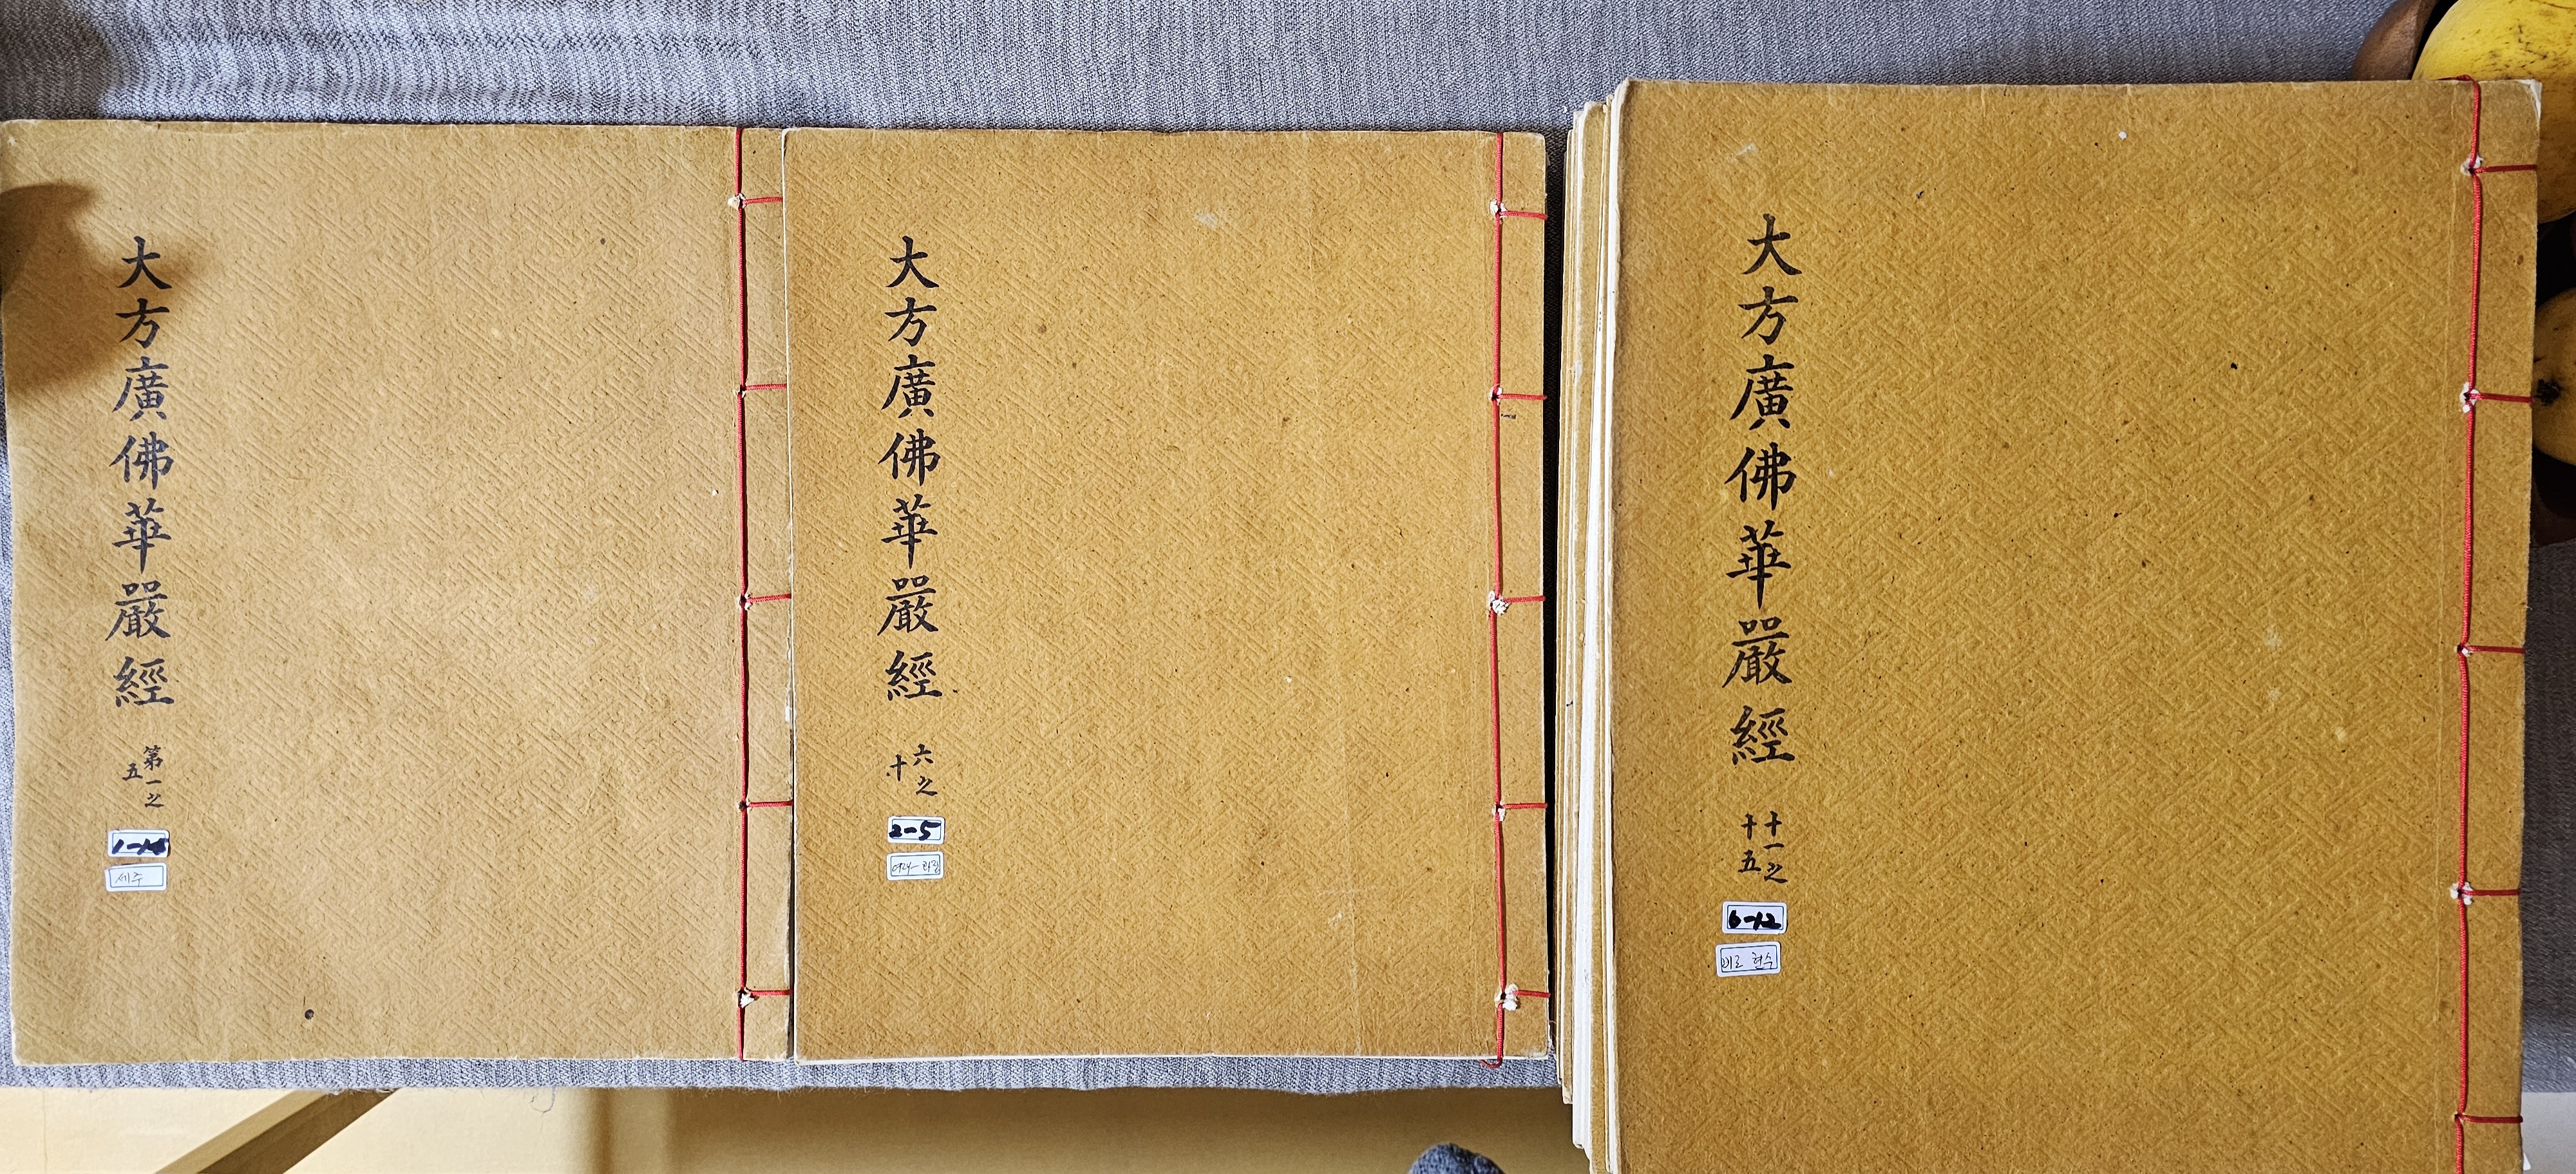 大方廣佛華嚴經
第一之
五
세주
大方廣佛華嚴經
六之
十
2-5
大方廣佛華嚴經
十一之
十五
6-12
현수